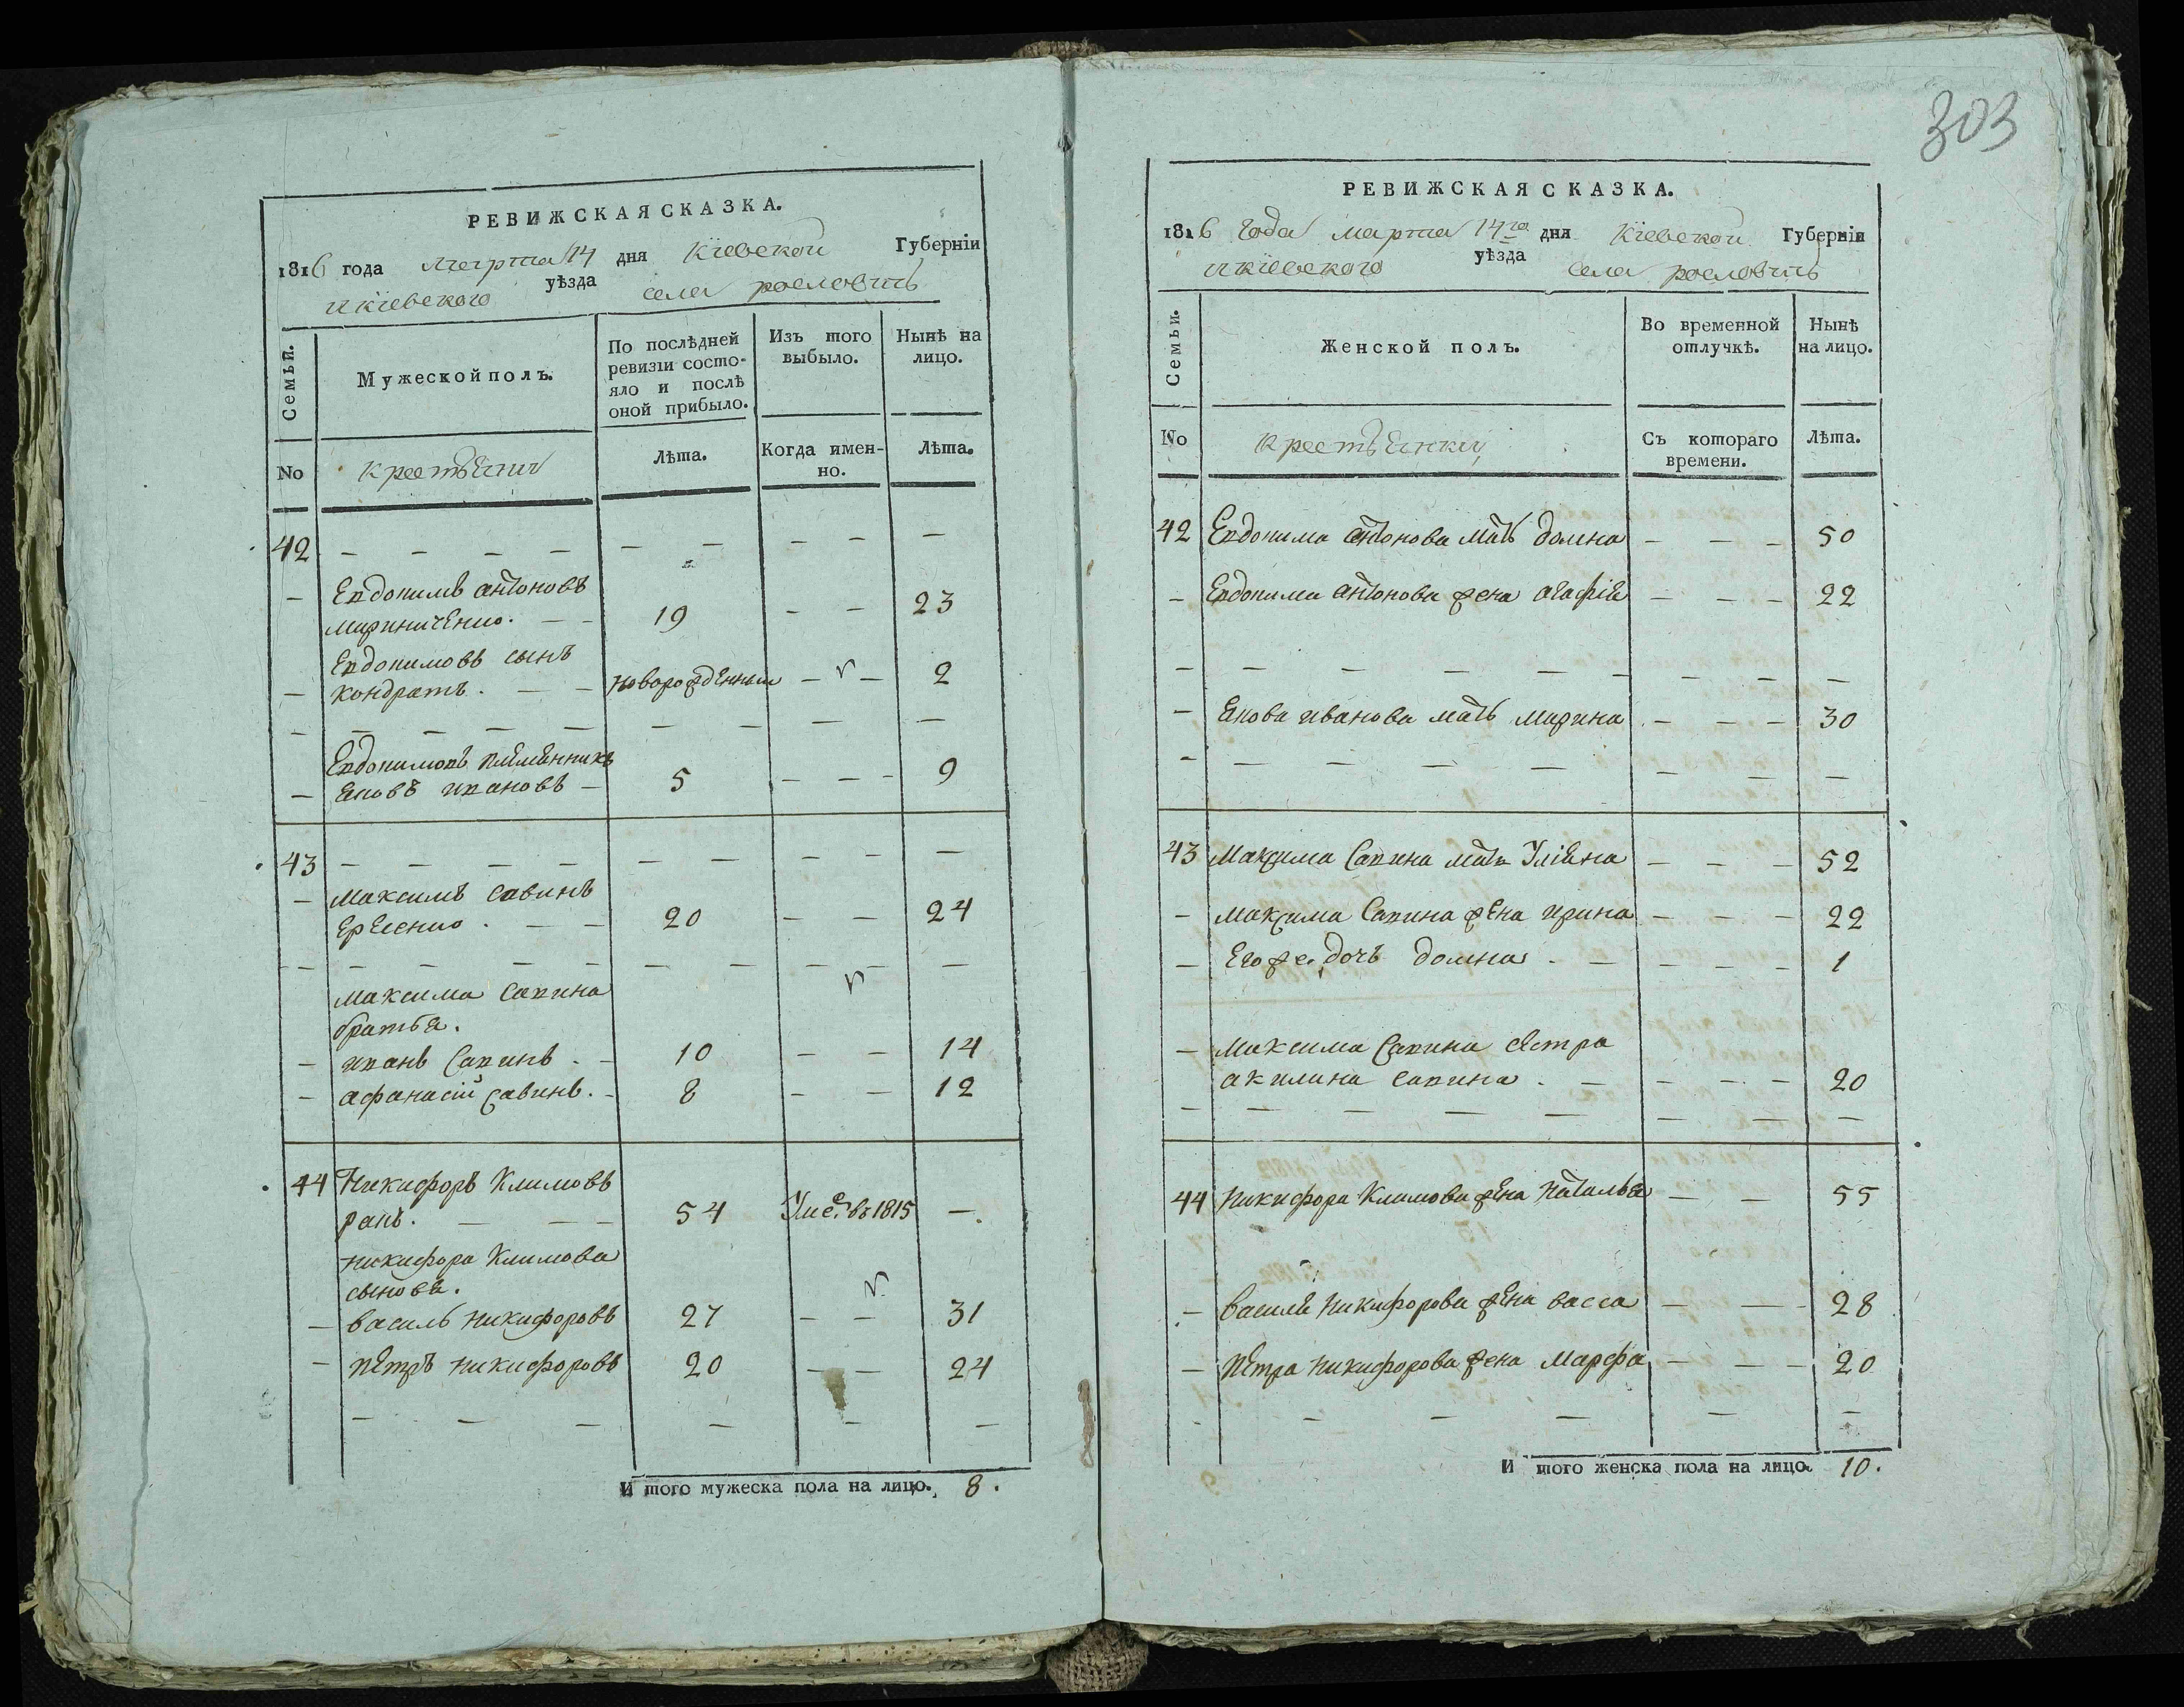 303
РЕВИЖСКАЯ СКАЗКА.
1816 года марта 14 дня Кіевской Губерніи
и кіевского уѣзда села рословичъ
Семьи.
Мужеской полъ.
По послѣдней ревизіи состо-
яло и послѣ
оной прибыло.
Изъ того
выбыло.
Нынѣ на
лицо.
No
крестьяни
Лѣта.
Когда имен-
но.
Лѣта.
42 — — — — — — — — —
— Евдокимъ антоновъ
мариниченко. — — 19 — — 23
Евдокимовъ сынъ
— кондратъ. — — новорожденный — — 2
— — — — — — — — —
Евдокимовъ племянникъ
— яковъ ивановъ — 5 — — — 9
43 — — — — — — — — —
— Максимъ Савинъ
ересенко. — — 20 — — 24
— — — — — — — — — —
Максима Савина
братья.
— иванъ Савинъ. — 10 — — 14
— афанасій савинъ. — 8 — — 12
44 Никифоръ Климовъ
ранъ. — — — 54 Уме. въ 1815 —.
никифора Климова
сыновя.
— василь никифоровъ 27 — — 31
— петръ никифоровъ 20 — — 24
— — — — — —
И того мужеска пола на лицо. 8.
РЕВИЖСКАЯ СКАЗКА.
1816 года марта 14го дня Кіевской Губерніи
и кіевского уѣзда села рословичъ
Семьи.
Женской полъ.
Во временной
отлучкѣ.
Нынѣ
на лицо.
No
крестьянки
Съ котораго
времени.
Лѣта.
42 Евдокима антонова мать домна — — — 50
— Евдокима антонова жена агафія — — — 22
— — — — — — — — —
— Якова иванова мать марина — — — 30
— — — — — — — —
43 Максима Савина мать Уліяна — — — 52
— Максима Савина жена ирина — — — 22
— Его же дочь домна. — — — — 1
— Максима Савина сестра
акилина савина. — — — — 20
— — — — — — — —
44 Никифора Климова жена наталья — — 55
— Василя никифорова жена васса — — — 28
— Петра никифорова жена Марфа — — — 20
— — — — — —
И того женска пола на лицо. 10.